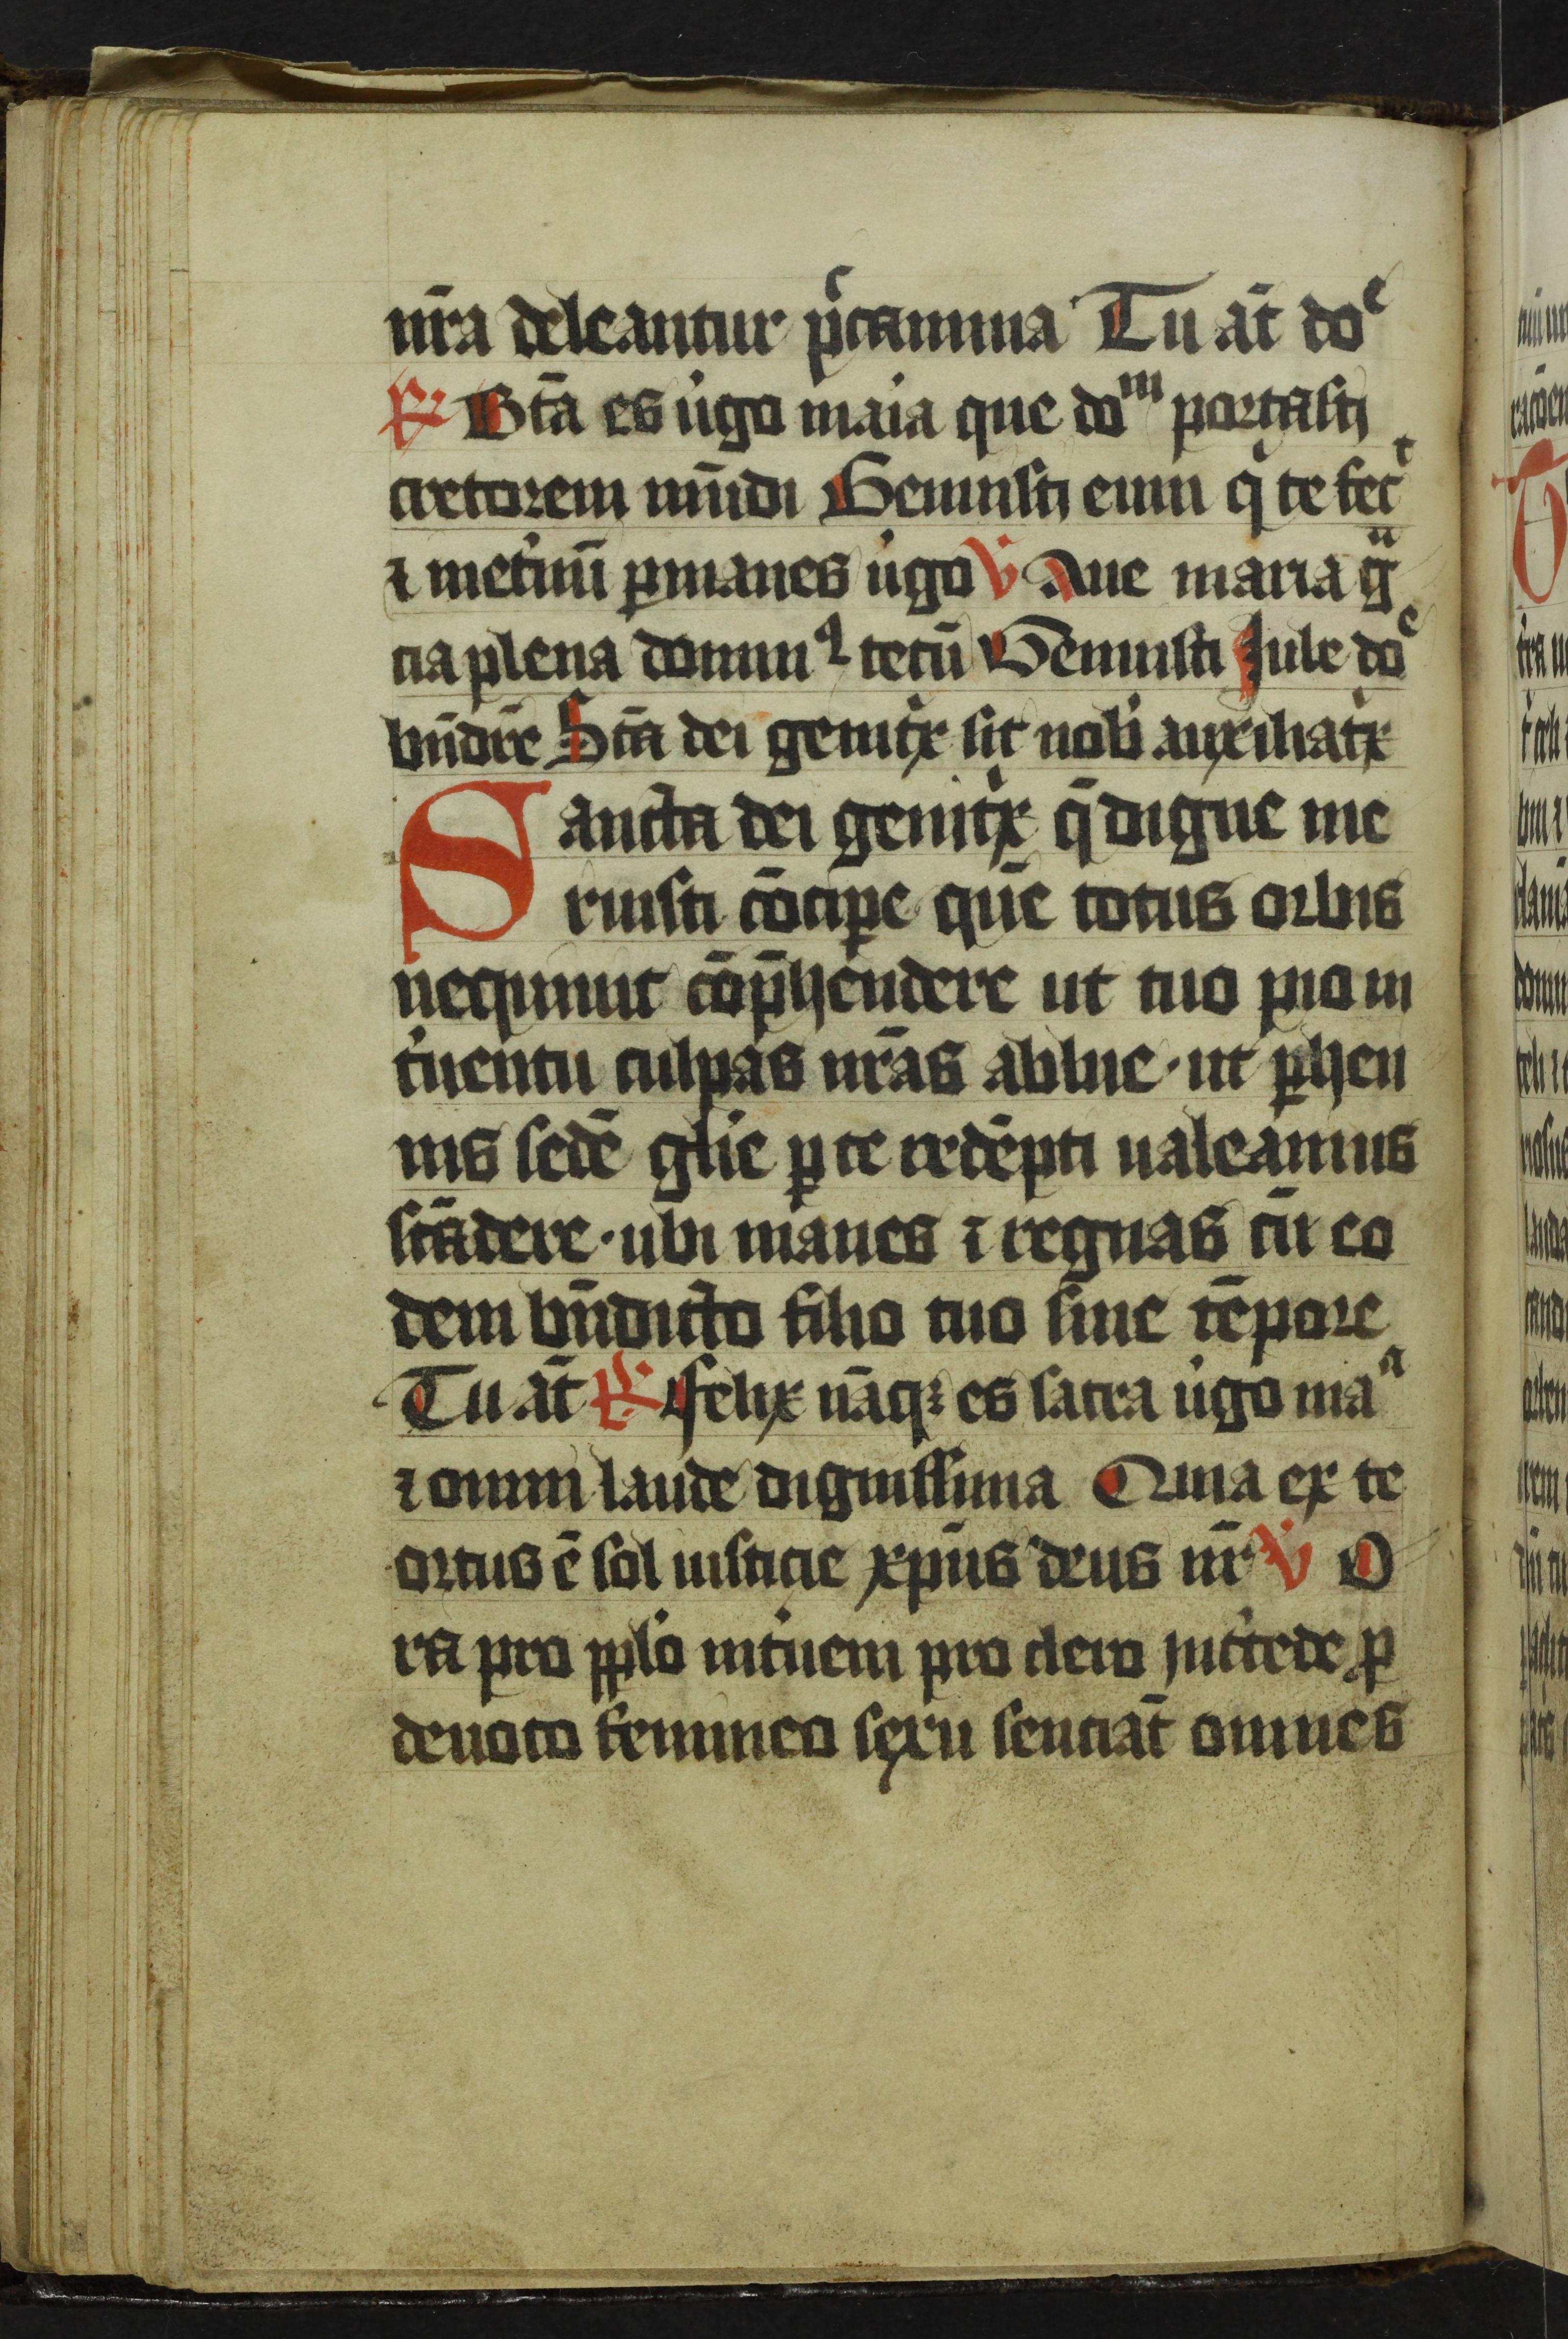 nr̄a deleantur p̄ccamina Tu āt doᵉ
℟ Btā es u̓go maria que doᵐ portasti
creatorem mūdi Genuisti eum q̇ te fecᵗ
⁊ inet̓nū ꝑmanes u̓go ℣ Aue maria gᵃ
cia plena dominꝰ tecū Genuisti Jube doᵉ
bn̄dic̄e Sctā dei genitx̓ sit nob̓ auxiliatx̓
Sancta dei genitx̓ q̄ digne me
ruisti cōciꝑe quē totus orbis
nequiuit cōp̄hendere ut tuo pio in
t̓uentu culpas nr̄as ablue · ut ꝑhen
nis sedē glīe ꝑ te redēpti ualeamus
scādere · ubi manes ⁊ regnas cū eo
dem bn̄dicto filio tuo sine tēpore
Tu āt ℟ Felix nāqꝫ es sacra u̓go maᵃ
⁊ omni laude dignissima Quia ex te
ortus ē sol iusticie xp̄us deus nr̄ ℣ O
ra pro ppl̓o int̓ueni pro clero int̓cede ꝓ
deuoto femineo sexu senciāt omnes